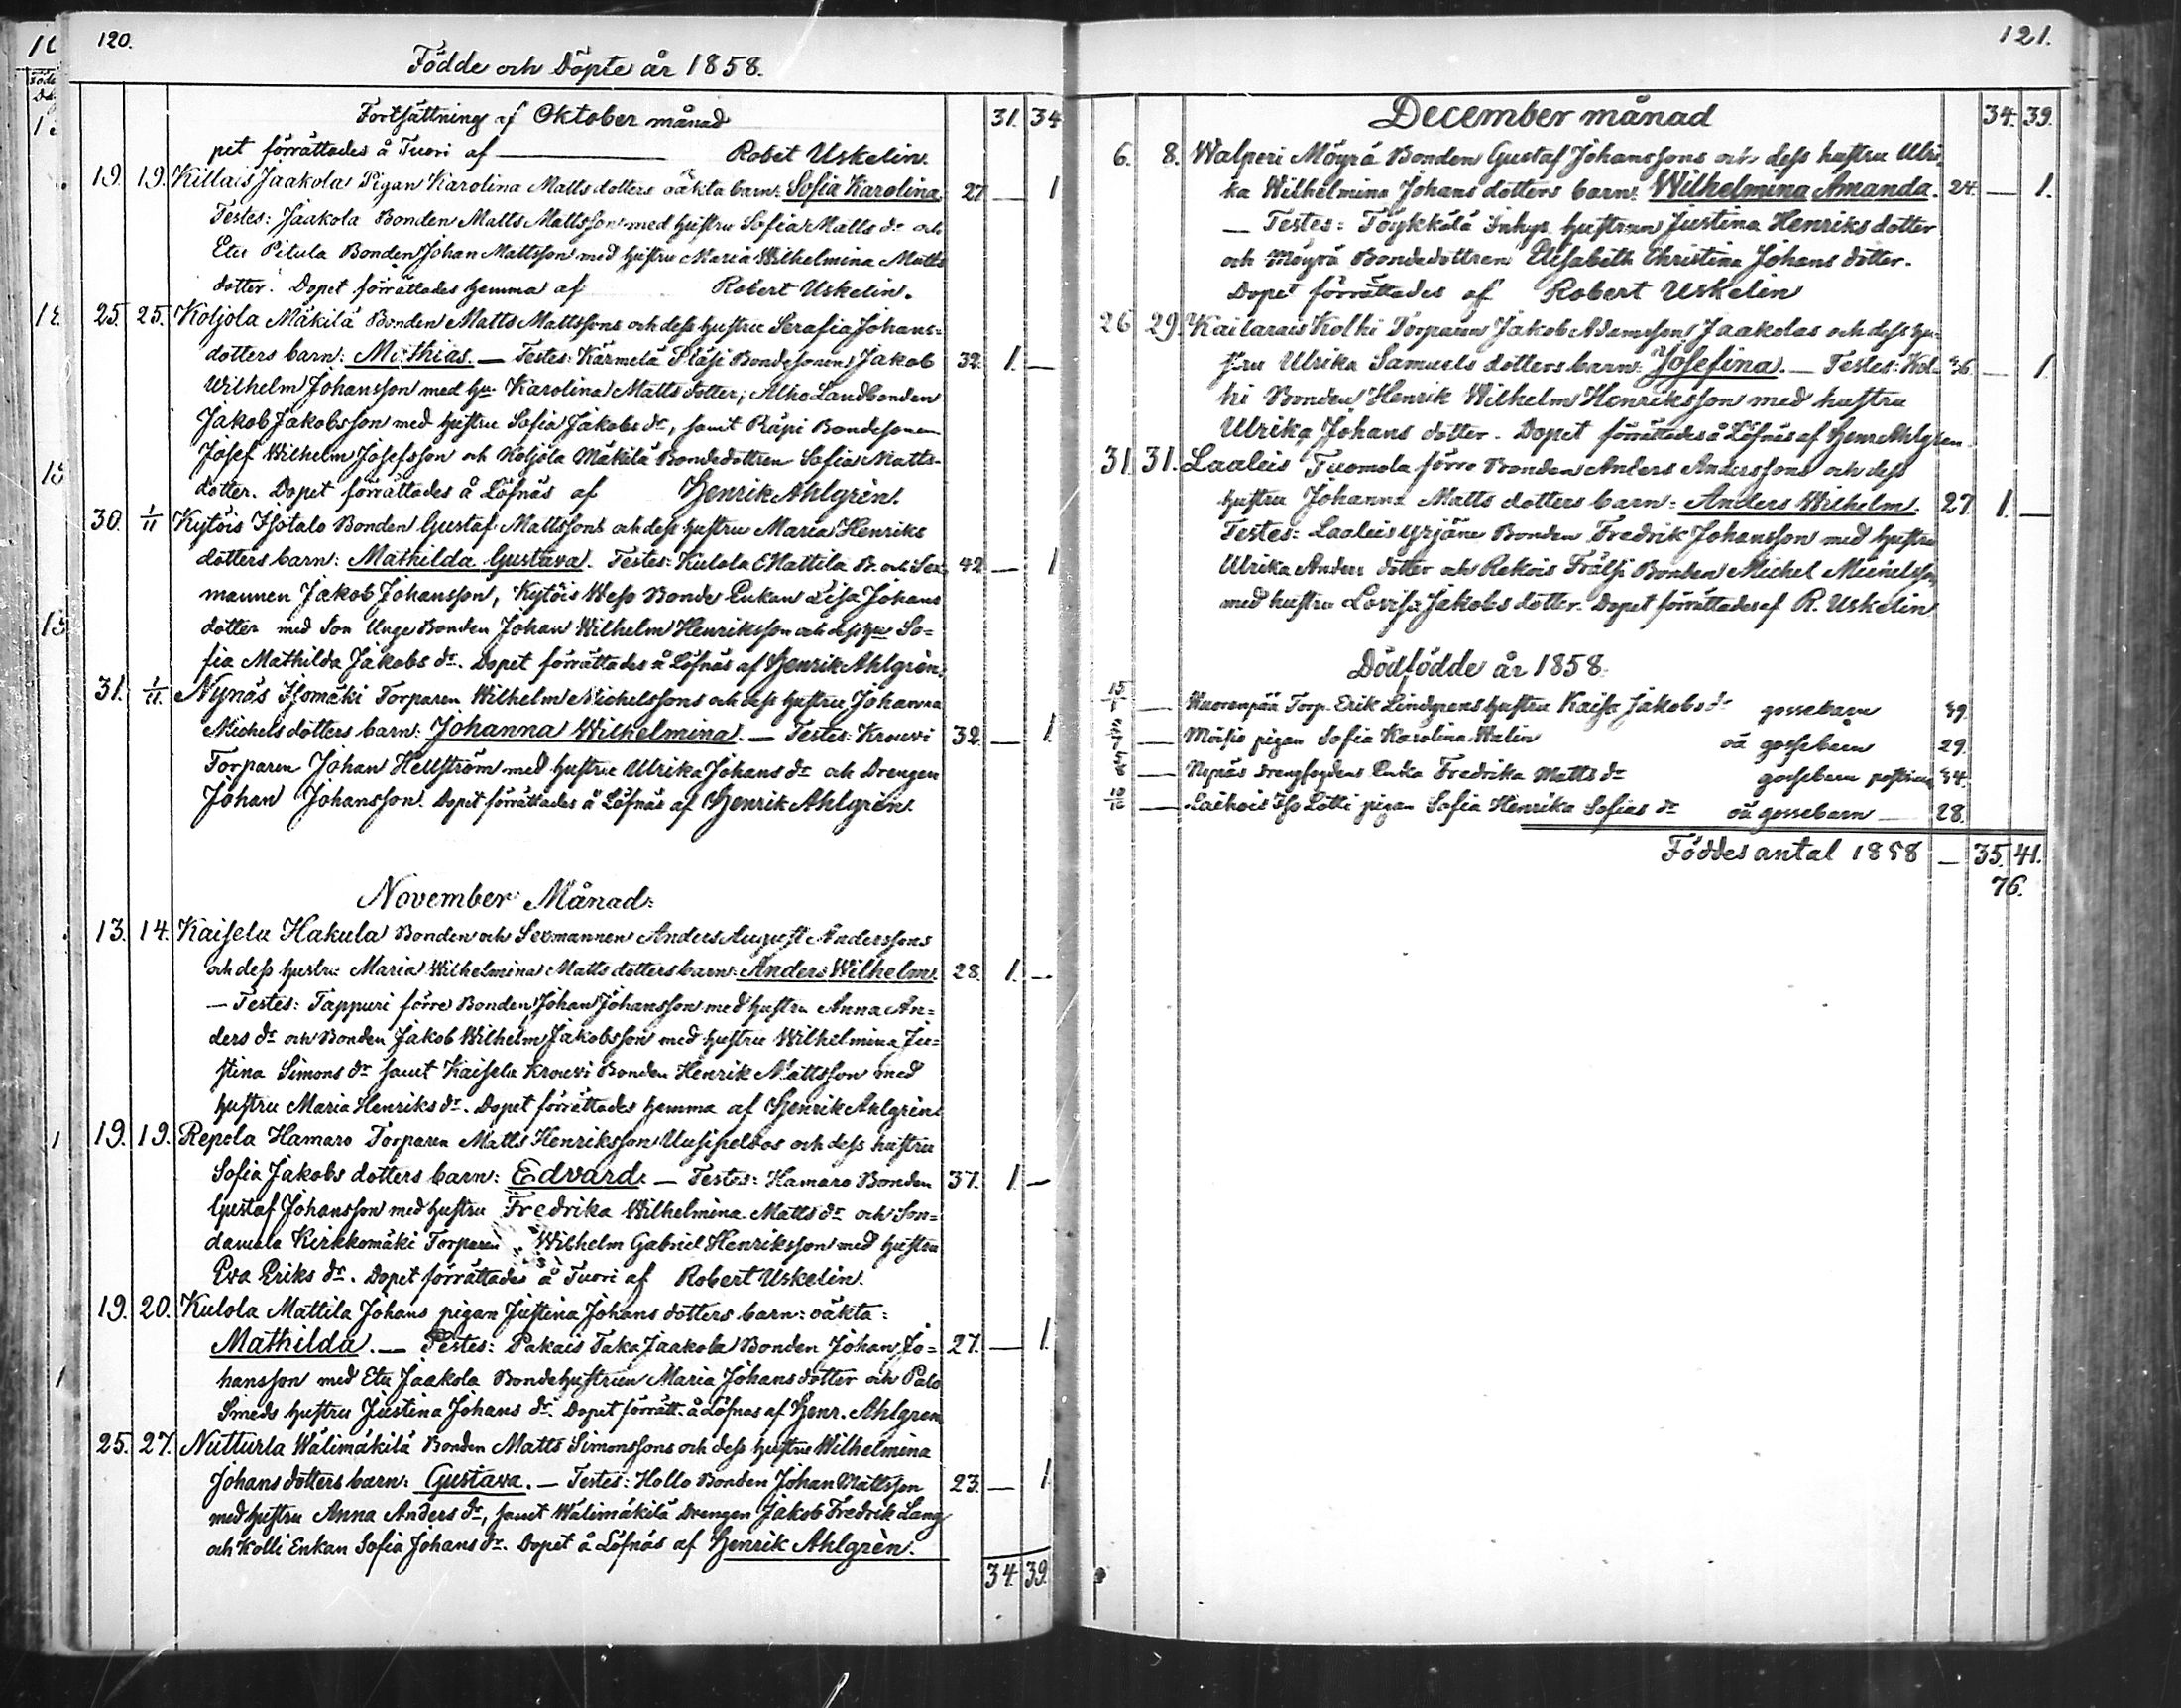 120.
Födde och Döpte år 1858.
Fortsättning af Oktober månad 31. 34
pet förrättades å Tuori af Robert Uskelin.
19. 19. Killais Jaakola Pigan Karolina Matts dotters oäkta barn: Sofia Karolina. 27 — 1
Testes: Jaakola Bonden Matts Mattsson med hustru Sofia Matts dr och
Etu Pitula Bonden Johan Mattsson med hustru Maria Wilhelmina Matts
dotter. Dopet förrättades hemma af Robert Uskelin.
25. 25. Koljola Mäkilä Bonden Matts Mattssons och dess hustru Serafia Johans=
dotters barn: Mathias. — Testes: Kärmelä Pläsi Bondesonen Jakob 32. 1. —
Wilhelm Johansson med hu Karolina Matts dotter; Alho Landbonden
Jakob Jakobsson med hustru Sofia Jakobs dr, samt Räpi Bondesonen
Josef Wilhelm Josefsson och Koljola Mäkilä Bondedottren Sofia Matts-
dotter. Dopet förrättades å Löfnäs af Henrik Ahlgrèn.
30. 1/11 Kytöis Isotalo Bonden Gustaf Mattssons och dess hustru Maria Henriks
dotters barn: Mathilda Gustava. Testes: Kulola Mattila B. och Sex- 42 — 1
mannen Jakob Johansson, Kytöis Wess Bonde Enkan Lisa Johans
dotter med Son Unge Bonden Johan Wilhelm Henriksson och dess hu So=
fia Mathilda Jakobs dr. Dopet förrättades å Löfnäs af Henrik Ahlgrèn.
31. 1/11. Nynäs Isomäki Torparen Wilhelm Michelssons och dess hustru Johanna
Michels dotters barn: Johanna Wilhelmina. — Testes: Krouvi 32. — 1.
Torparen Johan Hellström med hustru Ulrika Johans dr och Drengen
Johan Johansson. Dopet förrättades å Löfnäs af Henrik Ahlgrèn.
November Månad:
13. 14. Kaisela Hakula Bonden och Sexmannen Anders August Anderssons
och dess hustru Maria Wilhelmina Matts dotters barn: Anders Wilhelm. 28. 1. —
— Testes: Tappuri förre Bonden Johan Johansson med hustru Anna An=
ders dr och Bonden Jakob Wilhelm Jakobsson med hustru Wilhelmina Ju=
stina Simons dr samt Kaisela Krouvi Bonden Henrik Mattsson med
hustru Maria Henriks dr. Dopet förrättades hemma af Henrik Ahlgrèn.
19. 19. Repola Hamaro Torparen Matts Henriksson Uusipeldos och dess hustru
Sofia Jakobs dotters barn: Edvard. — Testes: Hamaro Bonden 37. 1. —
Gustaf Johansson med hustru Fredrika Wilhelmina Matts dr och Son=
damala Kirkkomäki Torparen Wilhelm Gabriel Henriksson med hustru
Eva Eriks dr. Dopet förrättades å Tuori af Robert Uskelin.
19. 20. Kulola Mattila Johans pigan Justina Johans dotters barn: oäkta:
Mathilda. — Testes: Pakais Taka Jaakola Bonden Johan Jo= 27. — 1.
hansson med Etu Jaakola Bondehustrun Maria Johans dotter och Palo
Smeds hustru Justina Johans dr. Dopet förrätt. å Löfnäs af Henr. Ahlgren
25. 27. Nutturla Wälimäkilä Bonden Matts Simonssons och dess hustru Wilhelmina
Johans dotters barn: Gustava. — Testes: Hollo Bonden Johan Mattsson 23. — 1
med hustru Anna Anders dr, samt Wälimäkilä Drengen Jakob Fredrik Lang
och Kolli Enkan Sofia Johans dr. Dopet å Löfnäs af Henrik Ahlgrèn.
34. 39.
121.
December månad 34. 39.
6. 8. Walperi Möyrä Bonden Gustaf Johanssons och dess hustru Ulri
ka Wilhelmina Johans dotters barn: Wilhelmina Amanda. 24. — 1.
— Testes: Töykkälä Inhys hustrun Justina Henriks dotter
och Möyrä Bondedottren Elisabeth Christina Johans dotter.
Dopet förrättades af Robert Uskelin
26 29. Kailarais Kolhi Torparen Jakob Adamsson Jaakolas och dess hu-
stru Ulrika Samuels dotters barn: Josefina. — Testes: Kol- 36 — 1.
hi Bonden Henrik Wilhelm Henriksson med hustru
Ulrika Johans dotter. Dopet förrättades å Löfnäs af Henr Ahlgren
31. 31. Laaleis Tuomola förre Bonden Anders Anderssons och dess
hustru Johanna Matts dotters barn: Anders Wilhelm. 27 1. —
Testes: Laaleis Yrjäne Bonden Fredrik Johansson med hustru
Ulrika Anders dotter och Rekois Frälsi Bonden Michel Michelsson
med hustru Lovisa Jakobs dotter. Dopet förrättades af R. Uskelin
Dödfödde år 1858.
— Wuorenpää Torp. Erik Lindgrens hustru Kaisa Jakobs dr gossebarn 39.
— Moisio pigan Sofia Karolina Walin oä gossebarn 29.
— Nynäs Drengfogdens Enka Fredrika Matts dr gossebarn 34.
— Laihois Iso Lötti pigan Sofia Henrika Sofias dr oä gossebarn — 28.
Föddes antal 1858 — 35. 41.
76.